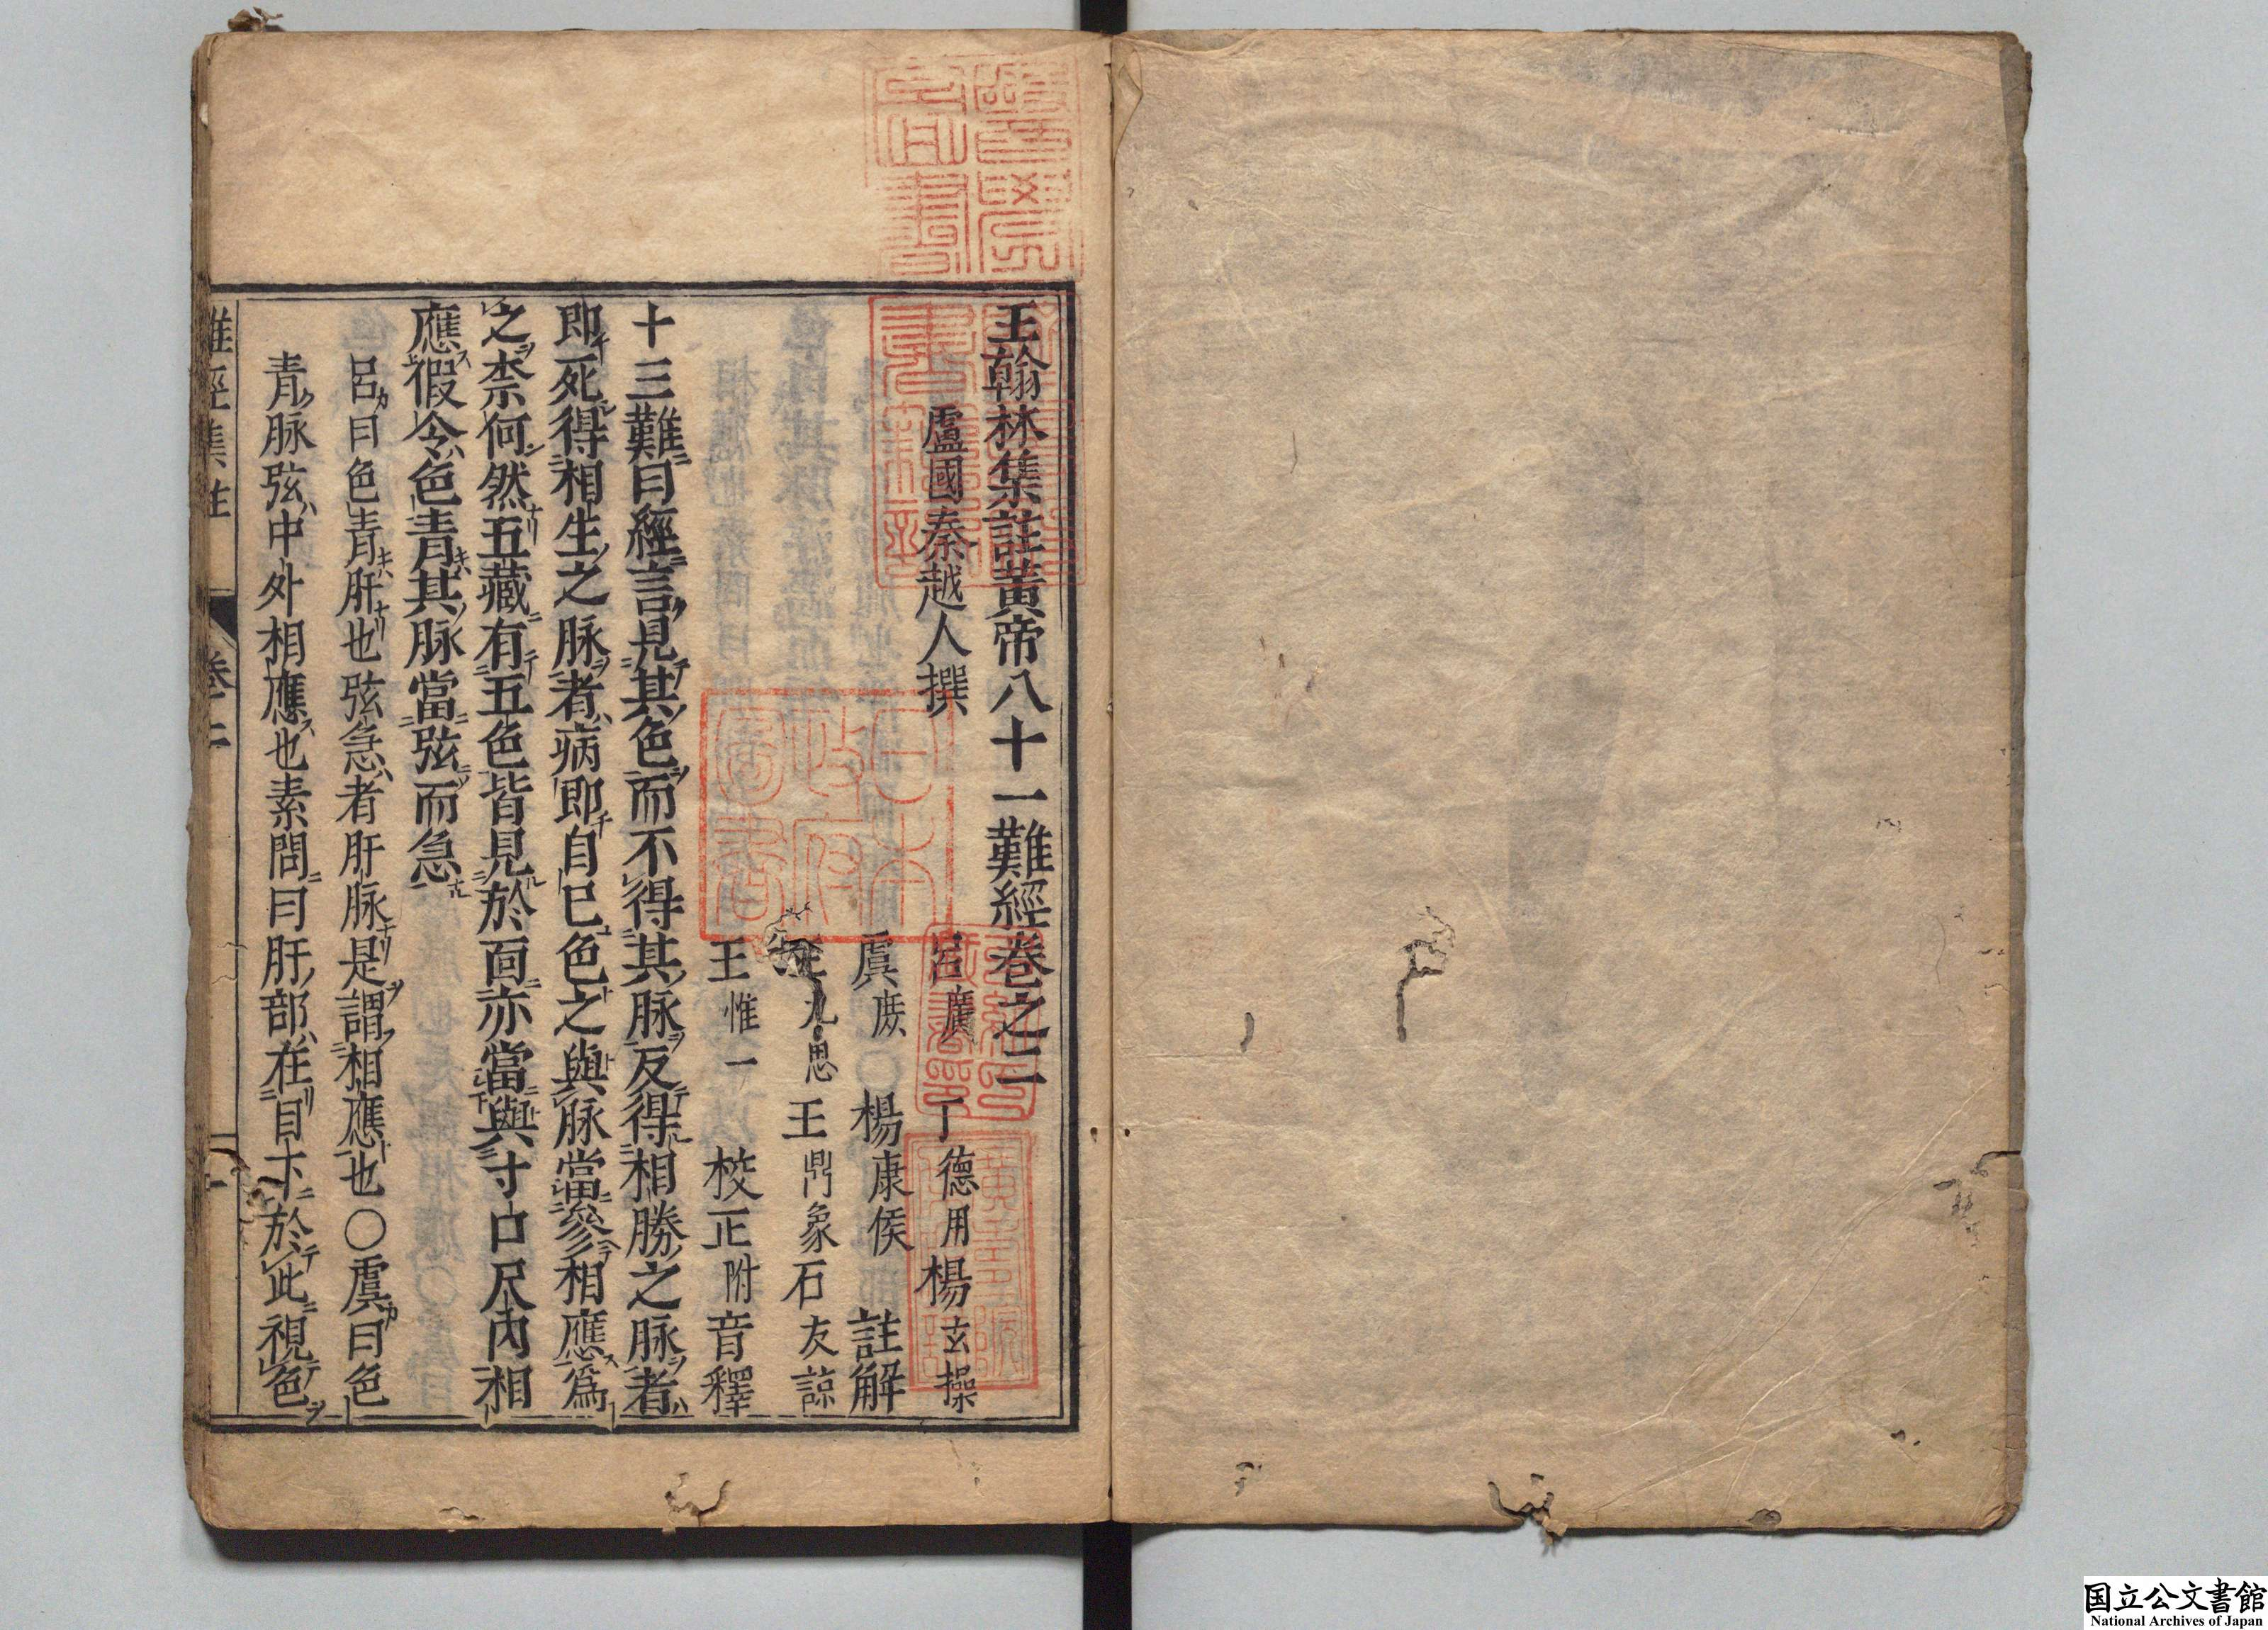 王翰林集註黃帝八十一難經卷之二
盧國秦越人撰
呂廣 丁德用 楊玄操
虞庻 楊康侯 註解
九思 王鼎象 石友諒
王惟一 校正附音釋
十三難曰經言見其色而不得其脉反得相勝之脉者
即死得相生之脉者病即自已色之與脉當參相應爲
之柰何然五藏有五色皆見於面亦當與寸口尺內相
應假令色青其脉當弦而急
呂曰色青肝也弦急者肝脉是謂相應也○虞曰色
青脉弦中外相應也素問曰肝部在目下於此視色
難經集註 卷二
日本政府圖書
国立公文書館
National Archives of Japan